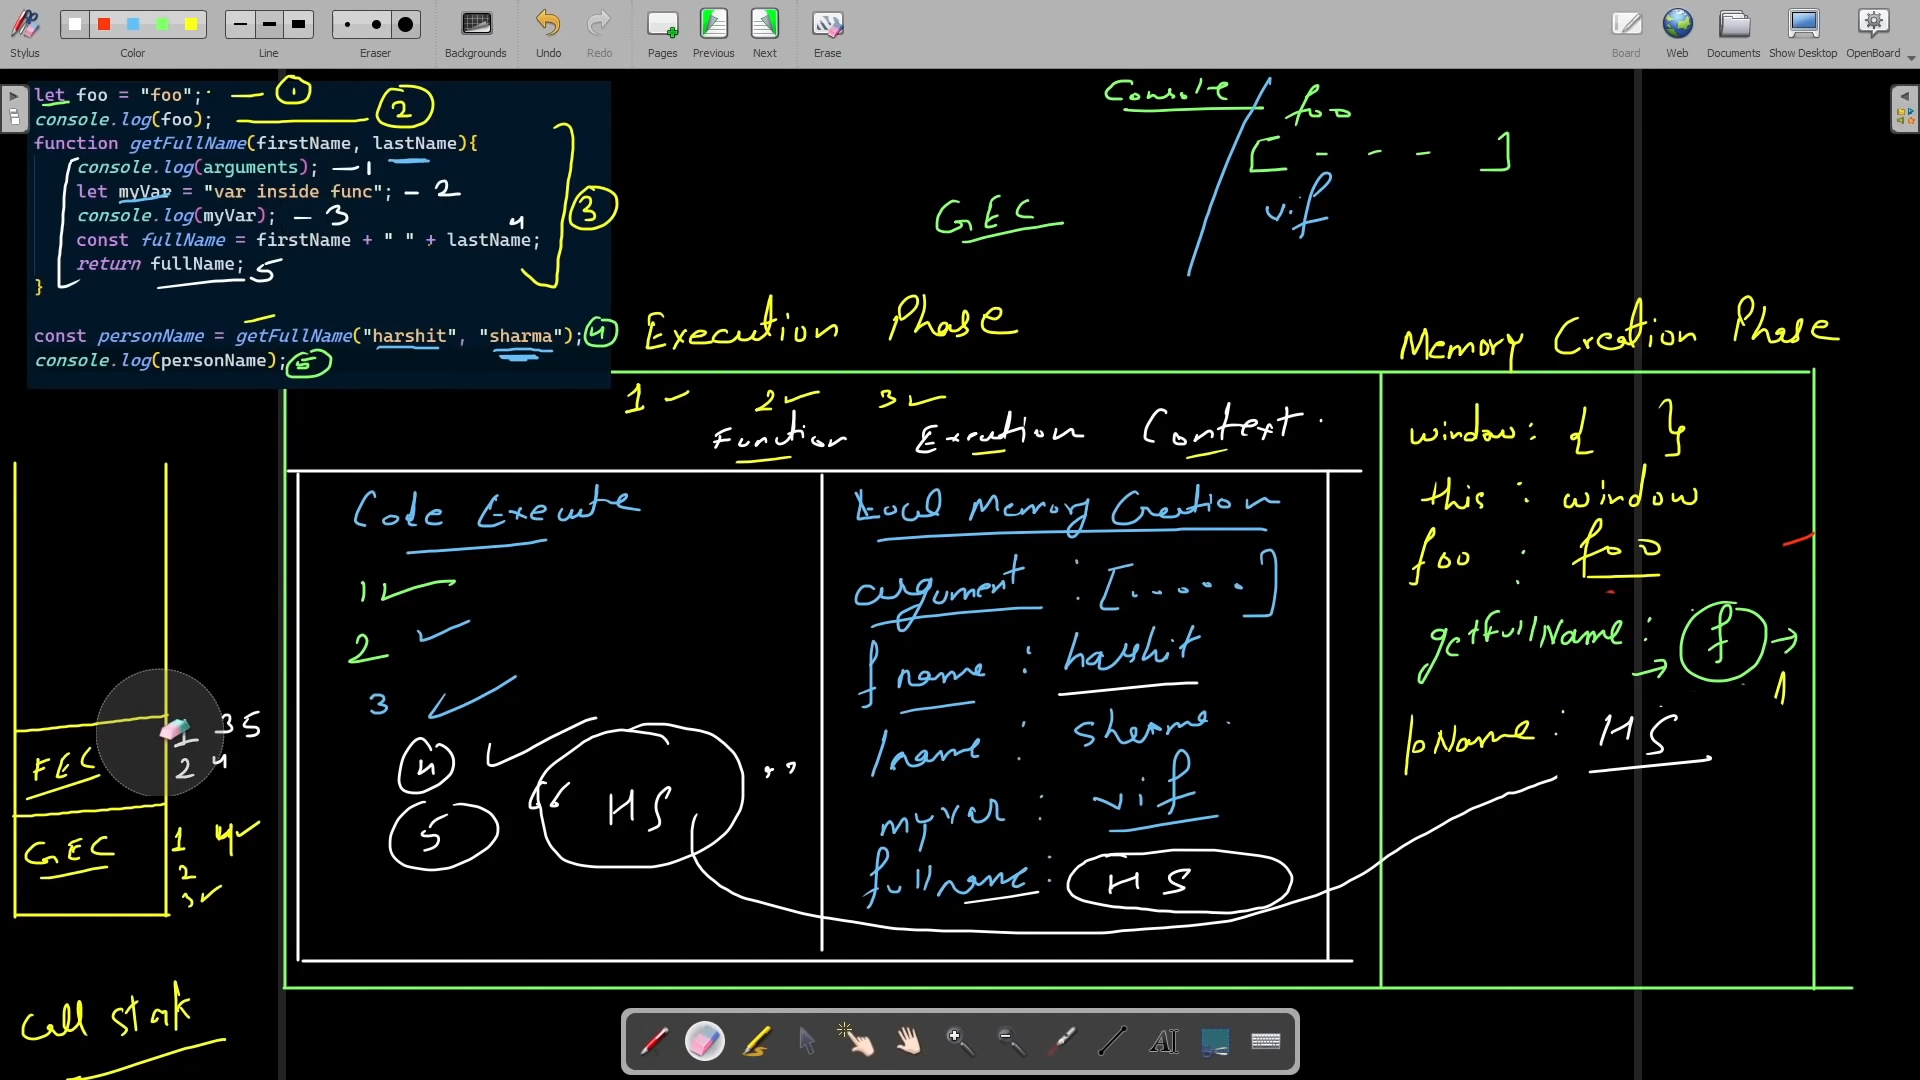 Stylus Color Line Eraser Backgrounds Undo Redo Pages Previous Next Erase Board Web Documents Show Desktop OpenBoard
let foo = "foo"; — 1
console.log(foo); 2
function getFullName(firstName, lastName){
console.log(arguments); — 1
let myVar = "var inside func"; — 2
console.log(myVar); — 3
const fullName = firstName + " " + lastName; 4
return fullName; 5
}
3
const personName = getFullName("harshit", "sharma"); 4
console.log(personName); 5
Console
foo
[ - - - ]
v.if
GEC
Execution Phase
Memory Creation Phase
1 2 3
Function Execution Context.
Code Execute
1
2
3
4
5
"HS"
Local Memory Creation
argument : [......]
fname : harshit
lname : sharma.
myvar : vif
fullname: HS
window: { }
this : window
foo : foo
getfullName: f
1
pName: HS
FEC
1 3 5
2 4
GEC
1 4
2
3
Call stak
AI